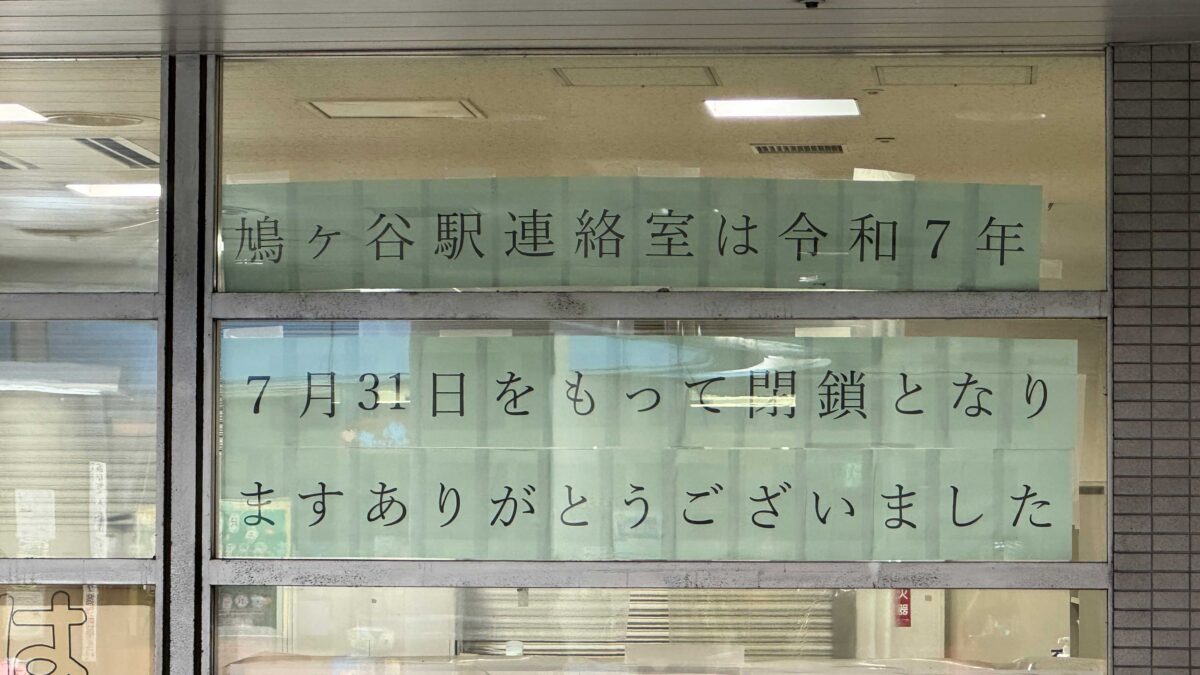 鳩ヶ谷駅連絡室は令和7年
7月31日をもって閉鎖となり
ますありがとうございました
は
火器